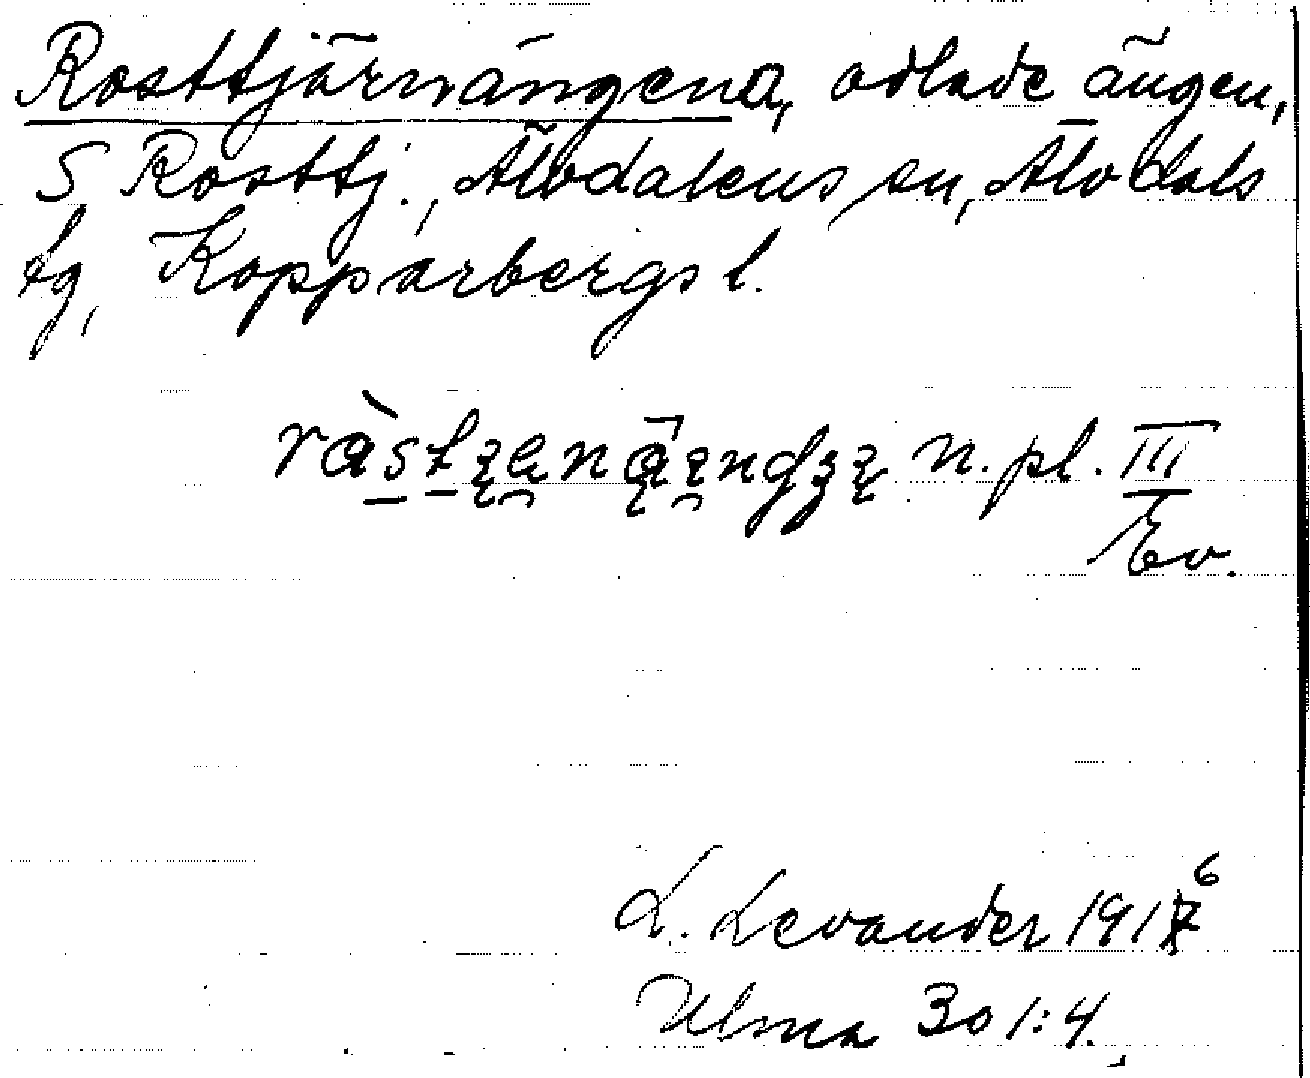 Rosttjärnängena, odlade ängen,
S Rosttj., Älvdalens sn, Älvdals
tg, Kopparbergs l.
n. pl. III
Ev.
L. Levander 1916
Ulma 301:4.